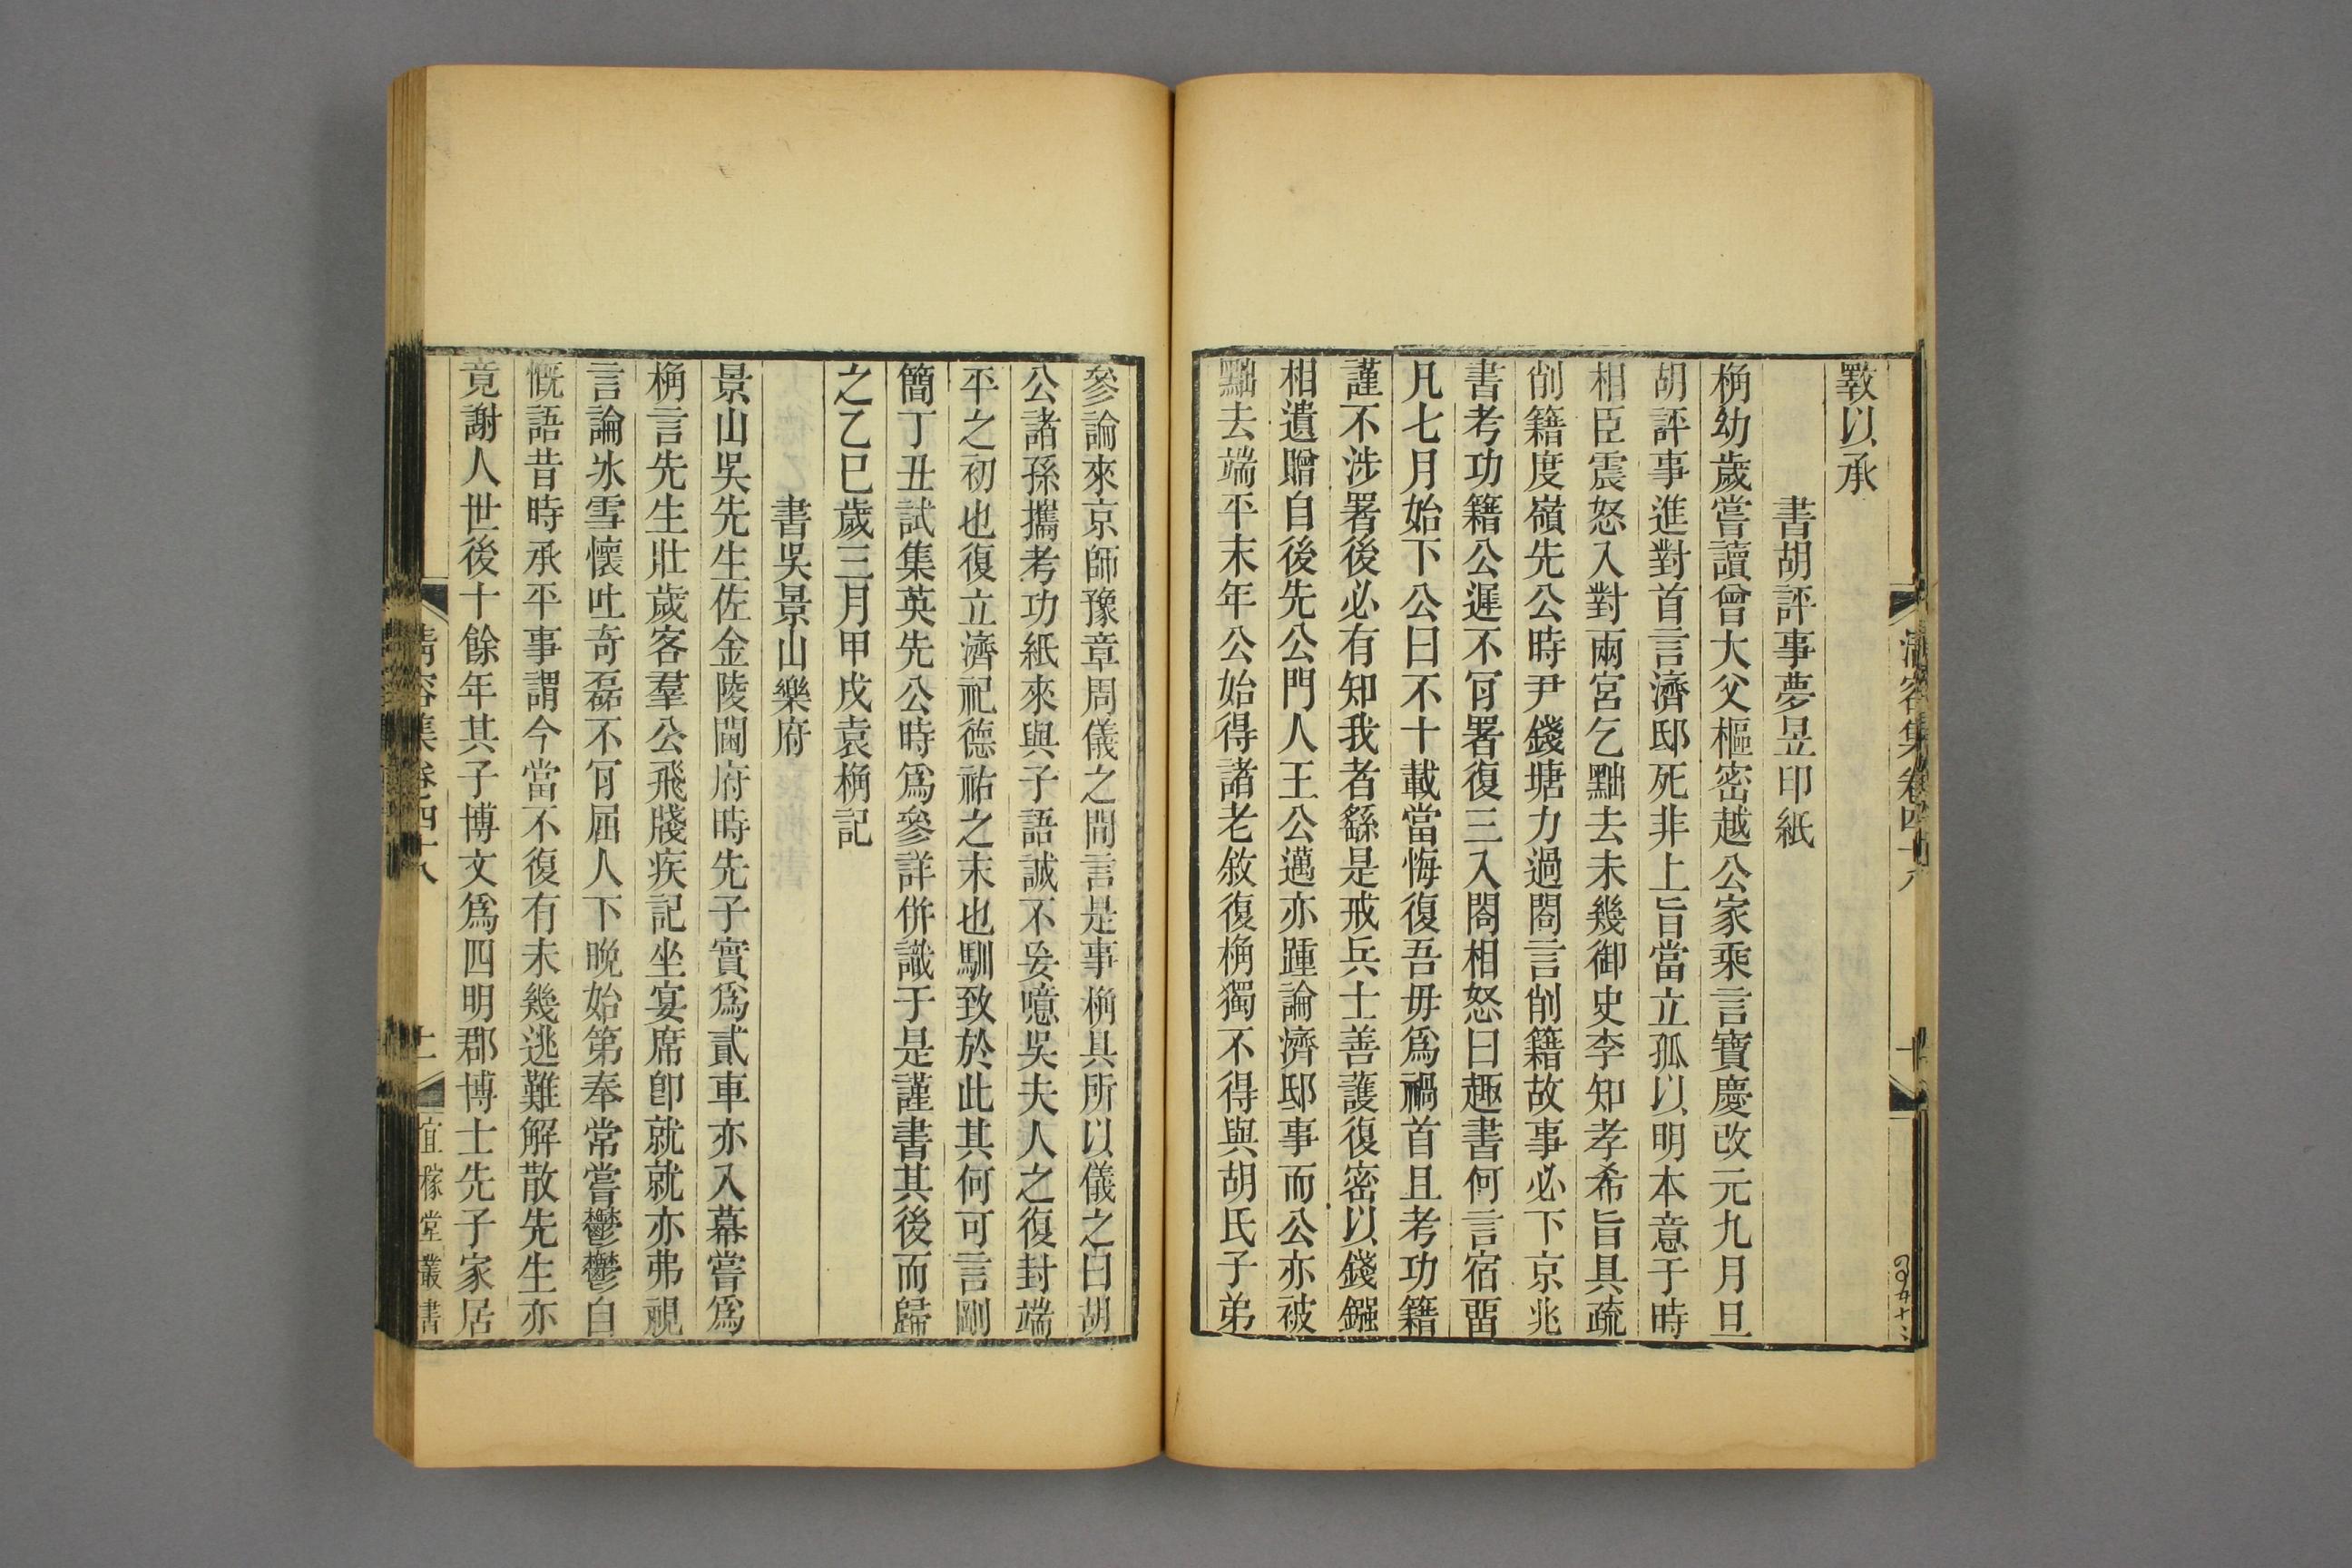 斁以承
書胡評事夢昱印紙
桷幼歲嘗讀曾大父樞密越公家乘言寶慶改元九月旦
胡評事進對首言濟邸死非上旨當立孤以明本意于時
相臣震怒入對兩宮乞黜去未幾御史李知孝希旨具疏
削籍度嶺先公時尹錢塘力過閤言削籍故事必下京兆
書考功籍公遲不肎署復三入閤相怒曰趣書何言宿畱
凡七月始下公曰不十載當悔復吾毋爲禍首且考功籍
謹不涉署後必有知我者繇是戒兵士善護復密以錢鏹
相遺贈自後先公門人王公邁亦踵論濟邸事而公亦被
黜去端平末年公始得諸老敘復桷獨不得與胡氏子弟
清容集卷四十八
十
參論來京師豫章周儀之間言是事桷具所以儀之曰胡
公諸孫攜考功紙來與子語誠不妄噫吳夫人之復封端
平之初也復立濟祀德祐之末也馴致於此其何可言剛
簡丁丑試集英先公時爲參詳併識于是謹書其後而歸
之乙巳歲三月甲戌袁桷記
書吳景山樂府
景山吳先生佐金陵閫府時先子實爲貳車亦入幕嘗爲
桷言先生壯歲客羣公飛牋疾記坐宴席卽就就亦弗視
言論氷雪懷吐奇磊不肎屈人下晚始第奉常嘗鬱鬱自
慨語昔時承平事謂今當不復有未幾逃難解散先生亦
竟謝人世後十餘年其子博文爲四明郡博士先子家居
清容集卷四十八
十一
宜稼堂叢書